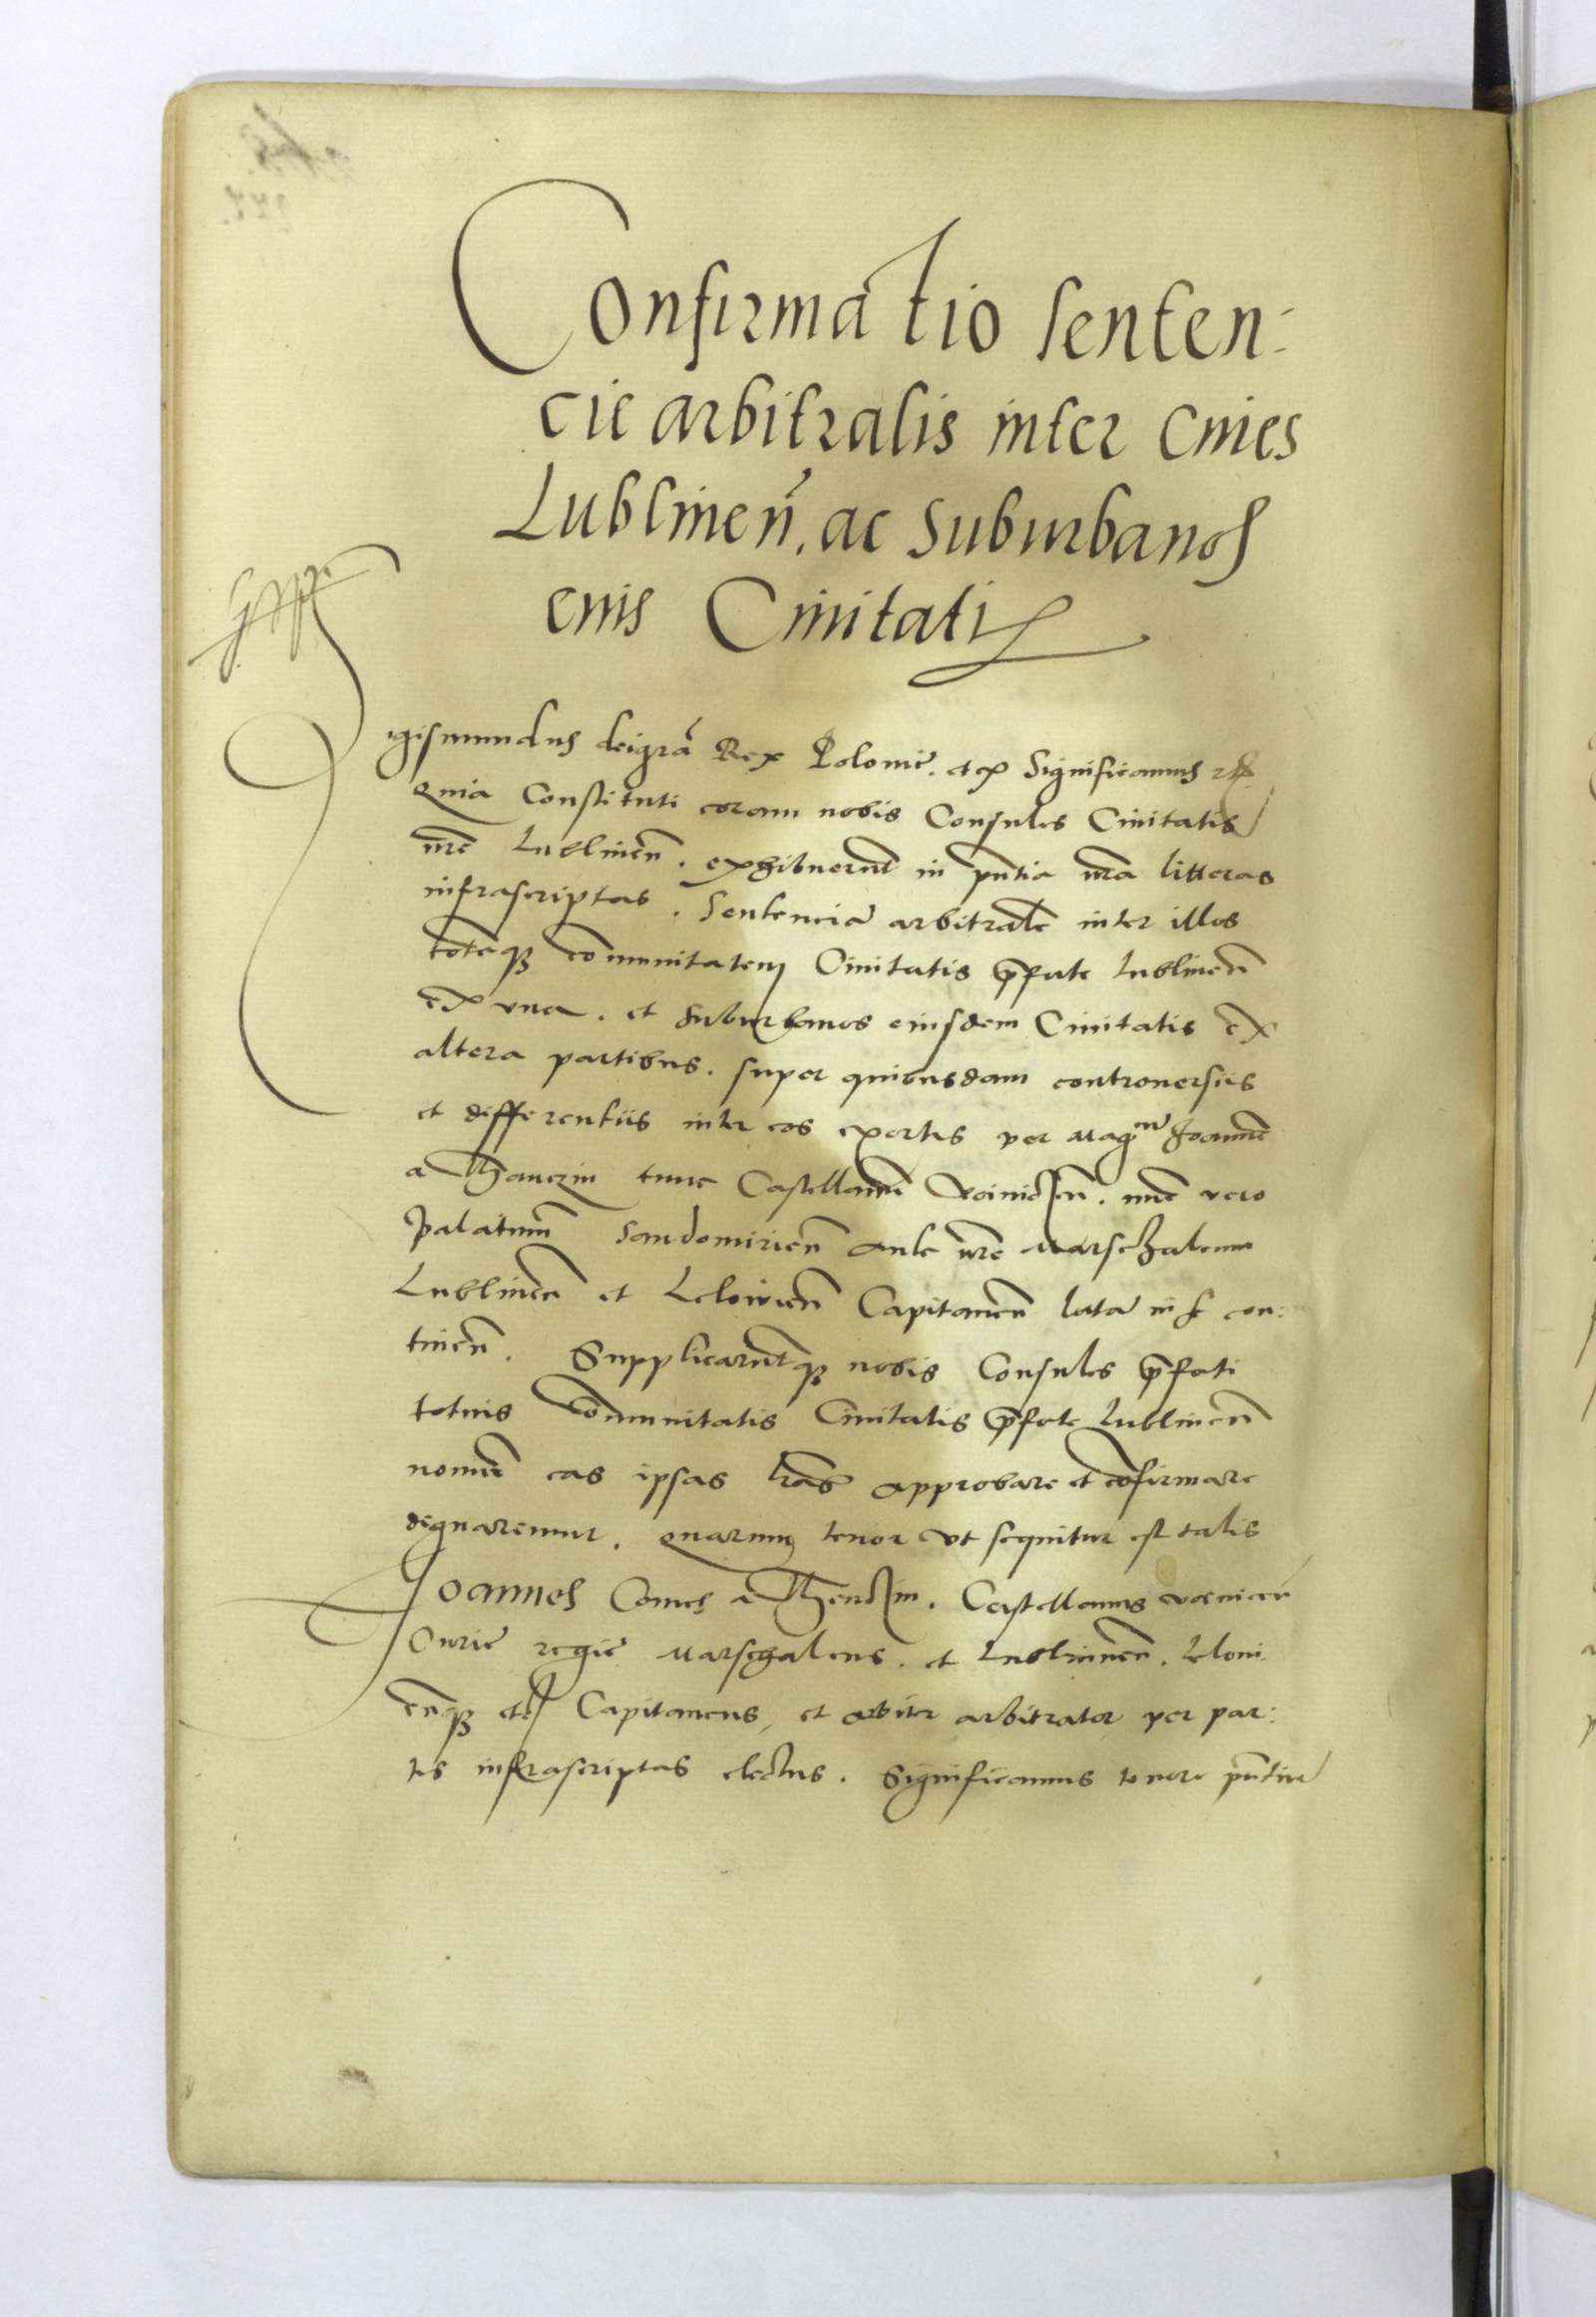 Confirmatio senten:
cie arbitralis inter Ciues
Lublineñ. ac Suburbanos
euis Ciuitatis
Sigismundus deigrã Rex Polonie. etc Significamus etc.
Quia Constituti coram nobis Consules Ciuitatis
nr̃e Lublineñ. exhibuerunt in pñtia nr̃a litteras
infrascriptas. Sentenciã arbitralẽ inter illos
totãqꝫ cõmunitatem Ciuitatis p̃fate Lublineñ
ex vna. et suburbanos eiusdem Ciuitatis ex
altera partibus. super quibusdam controuersiis
et differentiis inter eos exortis per Mag^cum Joannẽ
a Thanczin tunc Castellanũ Voiniceñ. nunc vero
Palatinũ Sandomirieñ Aule nr̃e Marschalcum
Lublineñ et Leloвieñ Capitaneũ latã in se con:
tineñ. Supplicarũtqꝫ nobis Consules p̃fati
totius Cõmunitatis Ciuitatis p̃fate Lublineñ
nomine eas ipsas lr̃as approbare et cõfirmare
dignaremur. quarum tenor vt sequitur est talis
Joannes Comes a Thenczin. Castellanus Voiniceñ
Curie regie Marschalcus. et Lublineñ. Leloui
eñqꝫ etc Capitaneus, et arbiter arbitrator per par:
tes infrascriptas electus. Significamus tenore pñtiũ